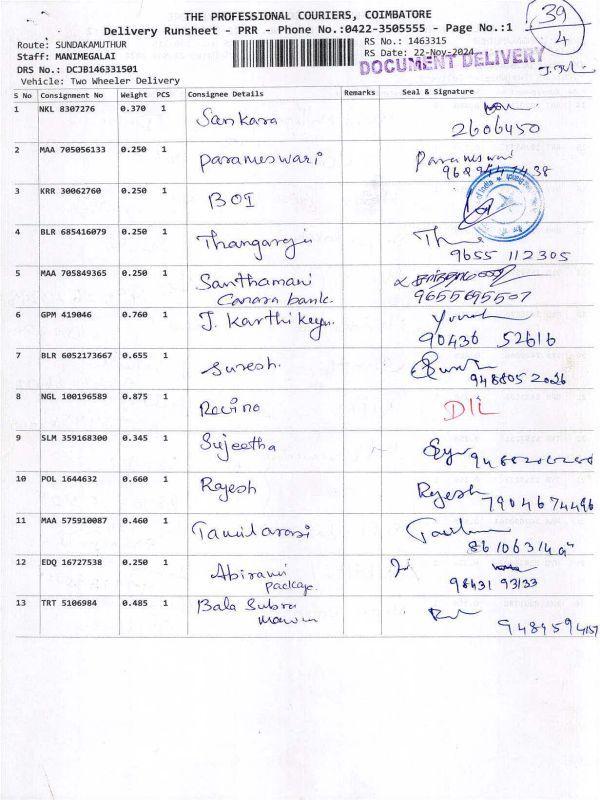 THE PROFESSIONAL COURIERS, COIMBATORE
Delivery Runsheet - PRR - Phone No.:0422-3505555 - Page No.:1
39
4
Route: SUNDAKAMUTHUR
RS No.: 1463315
Staff: MANIMEGALAI
RS Date: 22-Nov-2024
DOCUMENT DELIVERY
DRS No.: DCJB146331501
Vehicle: Two Wheeler Delivery
S No Consignment No Weight PCS Consignee Details Remarks Seal & Signature
1 NKL 8307276 0.370 1 Sankara
2606450
2 MAA 705056133 0.250 1 Parameswari Parameswari
3 KRR 30062760 0.250 1 BOI
4 BLR 685416079 0.250 1 Thangaraju
9655 112305
5 MAA 705849365 0.250 1 Santhamani
Canara bank.
9655695507
6 GPM 419046 0.760 1 J. Karthikeyan.
90436 52616
7 BLR 6052173667 0.655 1 Suresh.
948805 2026
8 NGL 100196589 0.875 1 Revino
9 SLM 359168300 0.345 1 Sujeetha
10 POL 1644632 0.660 1 Rajesh Rajesh
7904674496
11 MAA 575910087 0.460 1 Tamilarasi
12 EDQ 16727538 0.250 1 Abirami
package.
98431 93133
13 TRT 5106984 0.485 1 Bala Subra
9489594157